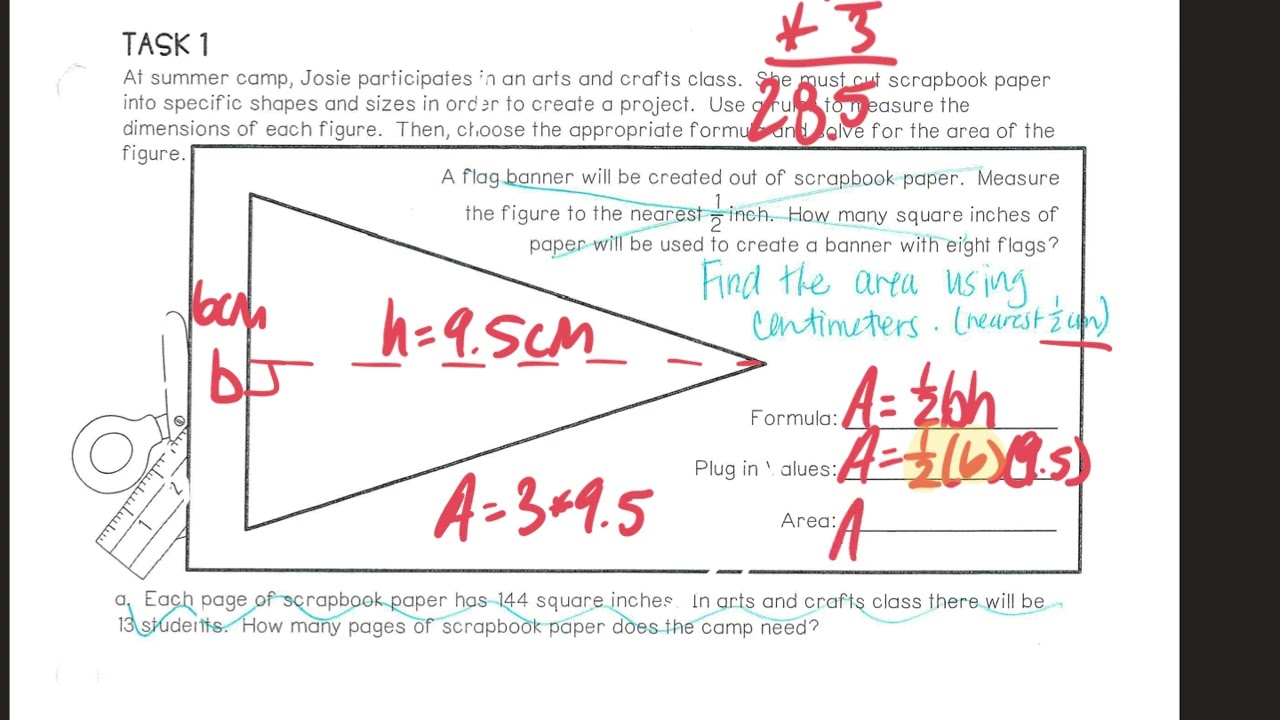 * 3
28.5
TASK 1
At summer camp, Josie participates in an arts and crafts class. She must cut scrapbook paper
into specific shapes and sizes in order to create a project. Use a ruler to measure the
dimensions of each figure. Then, choose the appropriate formula and solve for the area of the
figure.
A flag banner will be created out of scrapbook paper. Measure
the figure to the nearest 1/2 inch. How many square inches of
paper will be used to create a banner with eight flags?
Find the area using
centimeters. (nearest 1/2 cm)
6cm
h=9.5cm
b
Formula: A=1/2bh
Plug in values: A=1/2(6)(9.5)
A=3*9.5
Area: A
2
1
a. Each page of scrapbook paper has 144 square inches. In arts and crafts class there will be
13 students. How many pages of scrapbook paper does the camp need?